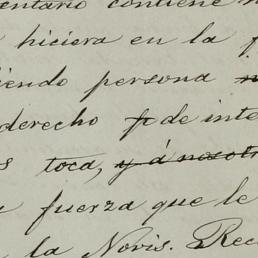 entario contiene
hiciera en la
iendo persona
derecho fo de inte
s toca, y á nosotr
fuerza que le
la Novis. Rec